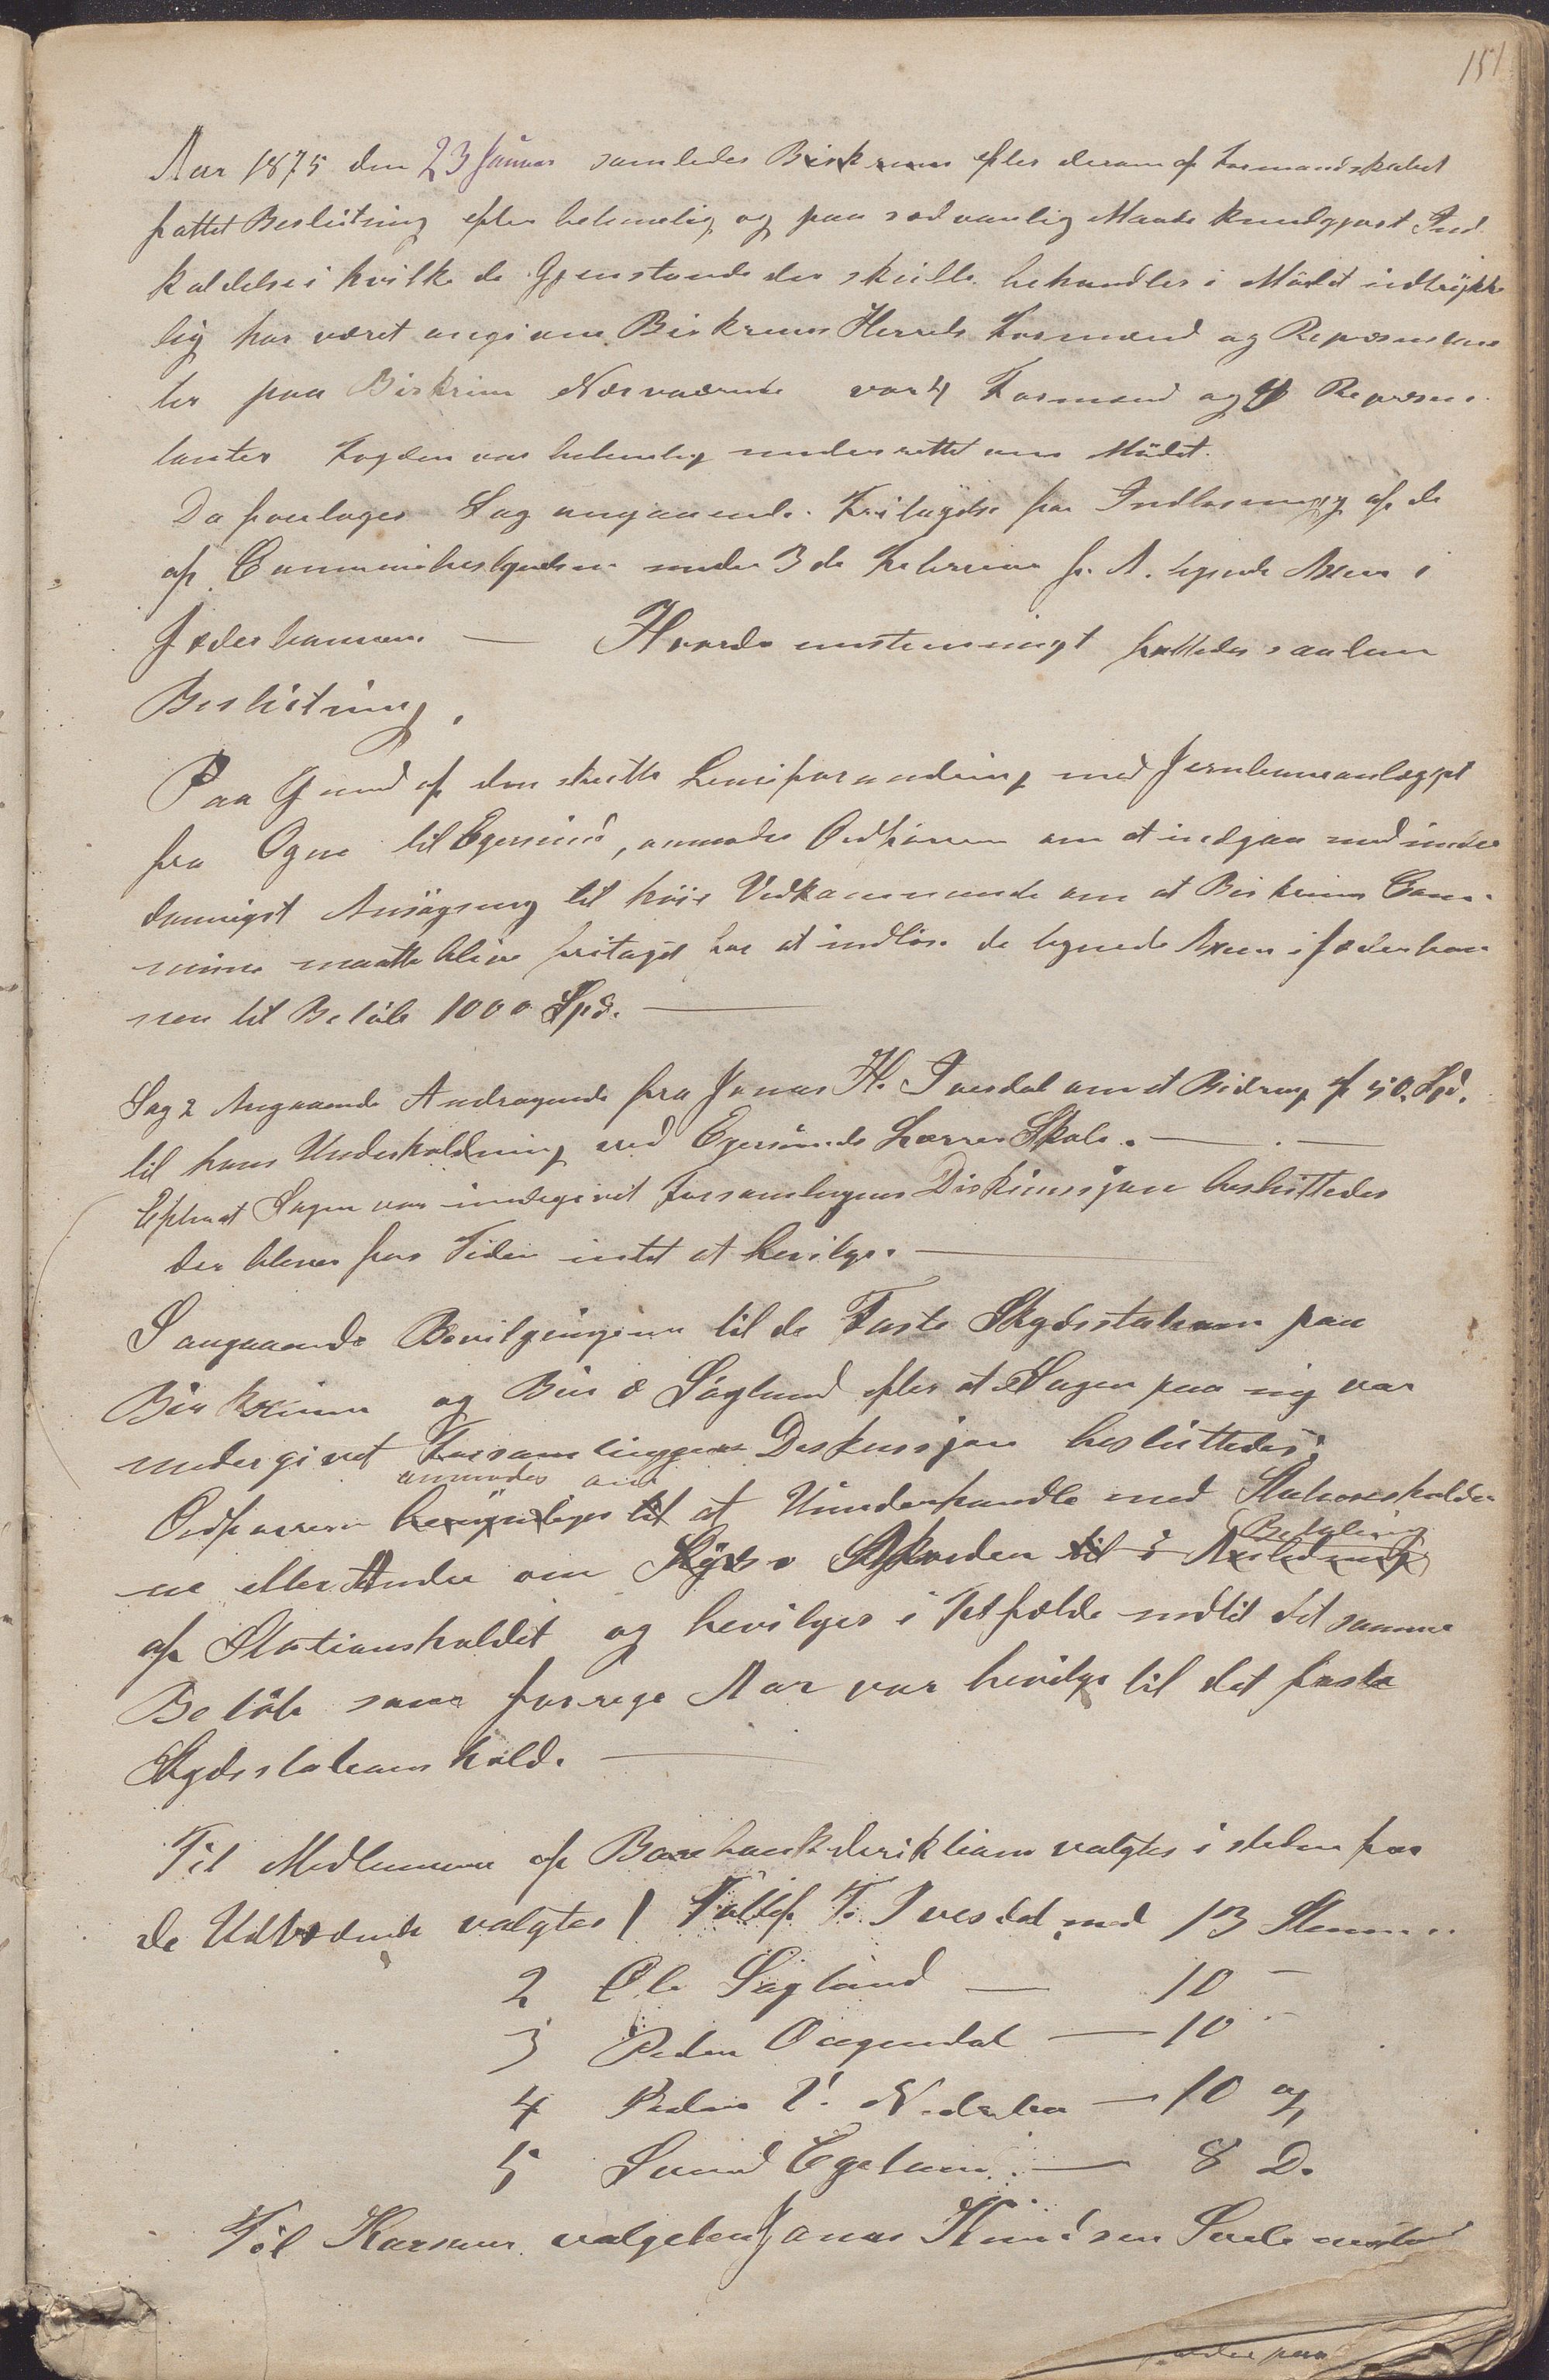 151
Aar 1875 den 23 Januar samledes Birkrem efter derom af Formandskabet
fattet Beslutning efter belemelig og paa sædvanlig Maade kundgjort Ind
kaldelse i hvilke de Gjenstande der skulle behandles i Mødet udtrykke
lig har været angivne Birkrems Herreds Formænd og Repræsentan
ter paa Birkrem Nærværende var 4 Formænd og 9 Repræsen
tanter Fogden var belemelig underrettet om Mødet.
Da foretages Sag angaaende Fritagelse for Indløsning af de
af Communebestyrelsen under 3de Februar f. A. tegnede Axier i
Jæderbanen — Hvorda enstemmigt fattedes saadan
Beslutning.
Paa Grund af den skette Linieforandring med Jernbaneanlægget
fra Ogne til Egersund, anmodes Ordføreren om at indgaa med under
danigst Ansøgning til høie Vedkommende om at Birkrems Com
mune maatte blive fritaget for at indløse de tegnede Axier i Jæderban
nen til Beløb 1000 Spd. —
Sag 2 Angaaende Andragende fra Jonas H. Ivesdal om et Bidrag af 50. Spd.
til hans Underholdning ved Egersunds Lærrer Skole. —
Efterat Sagen var undergivet forsamlingens Diskussjon besluttedes
der bliver for Tiden intet at bevilge. —
S angaaende Bevilgningen til de Faste Skydsstationer paa
Birkrem og Bue & Søylund efter at Sagen paa ny var
undergivet Forsamlingens Deskussjon besluttedes;
anmodes om
Ordføreren bemyndiges til at Underhandle med Stationsholder
Betaling
ne eller Andre om Skyds Akorden til i Anledning
af Stationsholdet og bevilges i Tilfælde indtil det samme
Beløb som forrige Aar var bevilge til det faste
Skydsstations hold. —
Til Medlemmer af Banbankderiktions valgtes i steden for
de Udtrædende valgtes 1 Tollef T. Ivesdal med 13 Stemmer
2 Ole Søgland — 10 —
3 Peder Ougendal — 10 —
4 Peder T. Nedrebø — 10 og
5 Svend Egeland — 8 D.
Til Kaserer valgtes Jonas Knudsen Svele